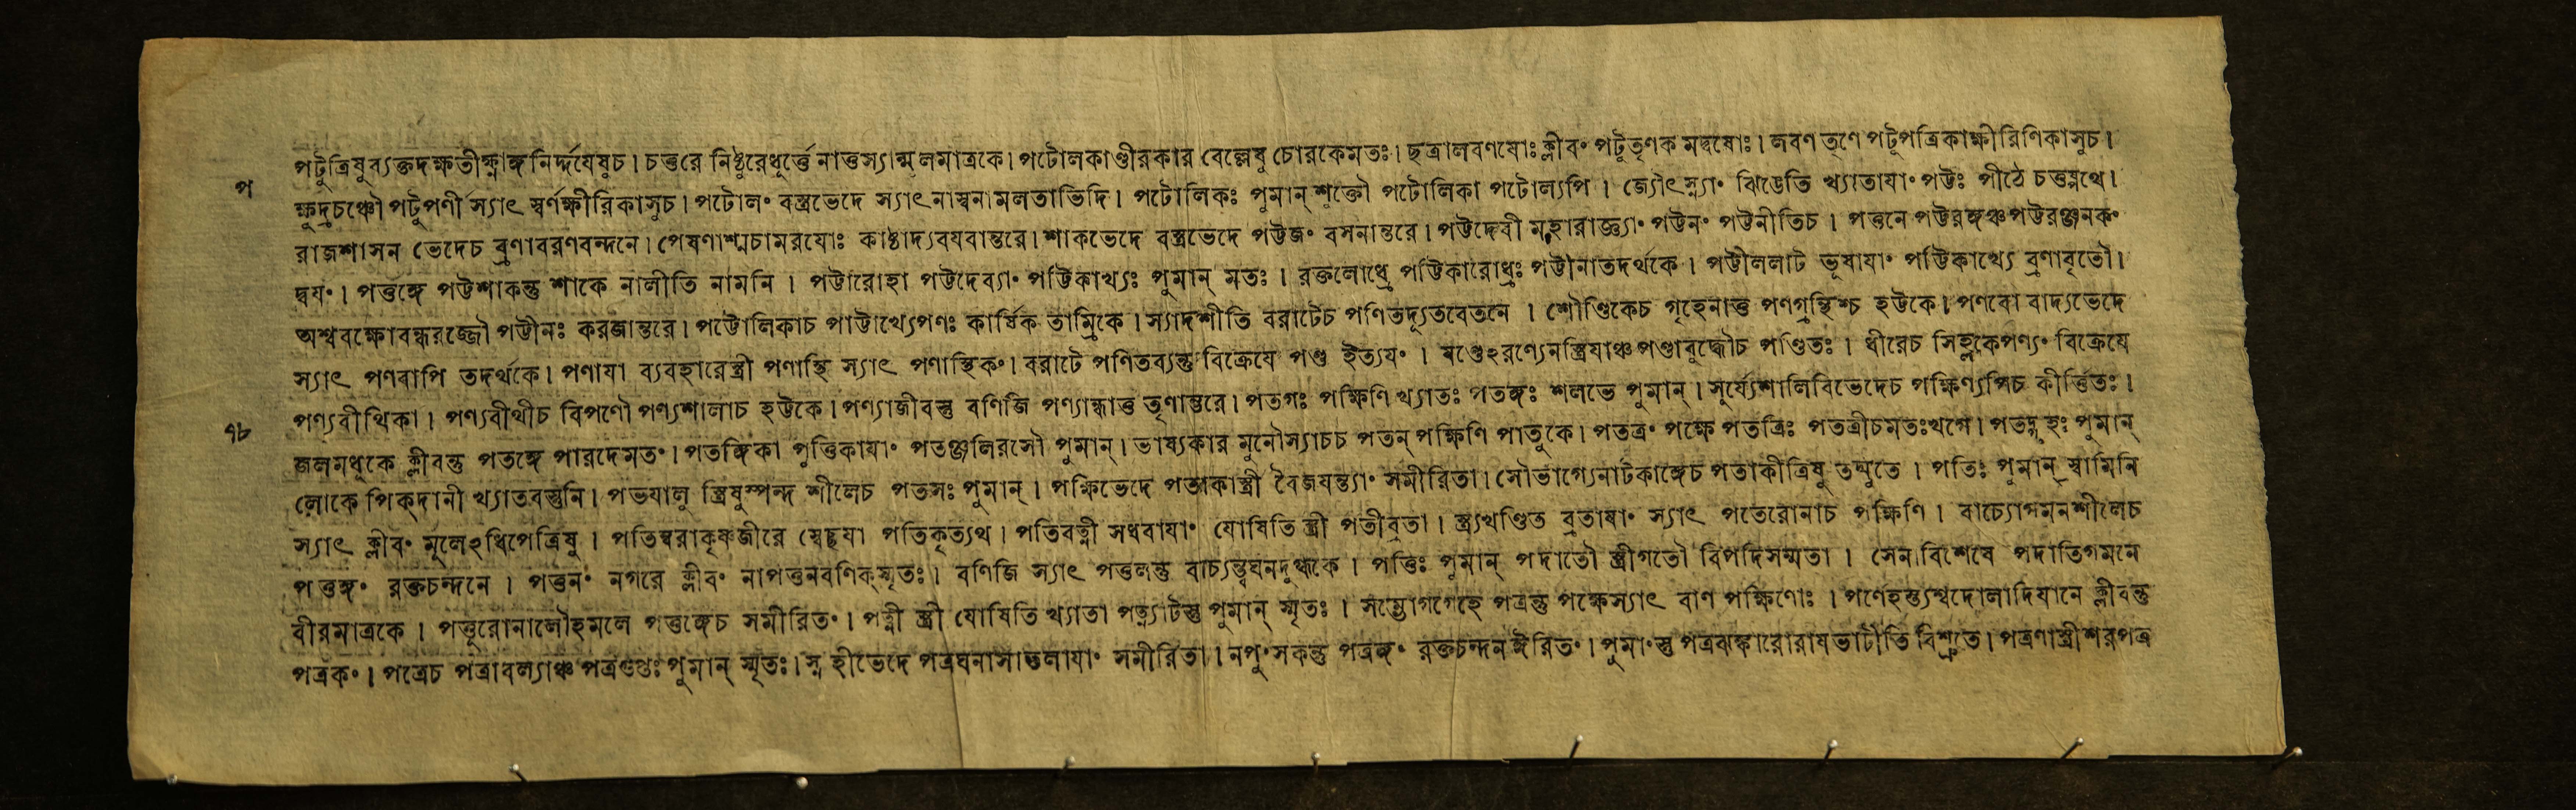 পটুত্রিষুব্যক্তদক্ষতীক্ষ্ণাঙ্গনির্দ্দযেষুচ। চত্তরে নিষ্ঠুরেধূর্ত্তে নাত্তস্যান্মূলমাত্রকে। পটোলকাণ্ডীরকার বেল্লেষু চোরকেমতঃ। ছত্রালবণষোঃ ক্লীবং পটূতৃণক মদ্বষোঃ। লবণ তৃণে পটূপত্রিকাক্ষীরিণিকাসুচ।
প
ক্ষুদ্রচঞ্চৌ পটুপর্ণী স্যাৎ স্বর্ণক্ষীরিকাসুচ। পটোলং বস্ত্রভেদে স্যাৎ নাস্বনামলতাভিদি। পটোলিকঃ পুমান্ শুক্তৌ পটোলিকা পটোল্যপি। জ্যোৎস্ন্যাং ঝিঙেতি খ্যাতাযাং পট্টঃ পীঠে চত্তষ্পথে।
রাজশাসন ভেদেচ ব্রণাবরণবন্দনে। পেষণাশ্মচামরযোঃ কাষ্ঠাদ্যবযবান্তরে। শাকভেদে বস্ত্রভেদে পট্টজং বসনান্তরে। পট্টদেবী মহারাজ্ঞ্যাং পট্টনং পট্টনীতিচ। পত্তনে পট্টরঙ্গঞ্চপট্টরঞ্জনকং
দ্বযং। পত্তঙ্গে পট্টশাকন্তু শাকে নালীতি নামনি। পট্টারোহা পট্টদেব্যাং পট্টিকাখ্যঃ পুমান্ মতঃ। রক্তলোধ্রে পট্টিকারোধ্রঃ পট্টীনাতদর্থকে। পট্টীললাট ভূষাযাং পট্টিকাখ্যে ব্রণাবৃতৌ।
অশ্ববক্ষোবন্ধরজ্জৌ পট্টীনঃ করজান্তরে। পট্টোলিকাচ পাট্টাখ্যেপণঃ কার্ষিক তাম্রিকে। স্যাদশীতি বরাটেচ পণিতদ্যূতবেতনে। শৌণ্ডিকেচ গৃহেনাত্ত পণগ্রন্থিশ্চ হট্টকে। পণবো বাদ্যভেদে
স্যাৎ পণবাপি তদর্থকে। পণাযা ব্যবহারেস্ত্রী পণাস্থি স্যাৎ পণাস্থিকং। বরাটে পণিতব্যন্তু বিক্রেযে পণ্ড ইত্যযং। ষণ্ডেঽরণ্যেনস্ত্রিযাঞ্চপণ্ডাবুদ্ধৌচ পণ্ডিতঃ। ধীরেচ সিহ্লকেপণ্যং বিক্রেযে
পণ্যবীথিকা। পণ্যবীথীচ বিপণৌ পণ্যশালাচ হট্টকে। পণ্যাজীবস্তু বণিজি পণ্যান্ধাত্ত তৃণান্তরে। পতগঃ পক্ষিণি খ্যাতঃ পতঙ্গঃ শলভে পুমান্। সূর্য্যেশালিবিভেদেচ পক্ষিণ্যপিচ কীর্ত্তিতঃ।
৭৮
জলমধূকে ক্লীবন্তু পতঙ্গে পারদেমতং। পতঙ্গিকা পুত্তিকাযাং পতঞ্জলিরসৌ পুমান্। ভাষ্যকার মুনৌস্যাচচ পতন্ পক্ষিণি পাতুকে। পতত্রং পক্ষে পতত্রিঃ পতত্রীচমতঃখগে। পতদ্গ্রহঃ পুমান্
লোকে পিক্দানী খ্যাতবস্তুনি। পতযালু স্ত্রিষুস্পন্দ শীলেচ পতসঃ পুমান্। পক্ষিভেদে পতাকাস্ত্রী বৈজযন্ত্যাং সমীরিতা। সৌভাগ্যেনাটকাঙ্গেচ পতাকীত্রিষু তদ্যুতে। পতিঃ পুমান্ স্বামিনি
স্যাৎ ক্লীবং মূলেঽধিপেত্রিষু। পতিম্বরাকৃষ্ণজীরে স্বেচ্ছযা পতিকৃত্যথ। পতিবত্নী সধবাযাং যোষিতি স্ত্রী পতীব্রতা। স্ত্র্যখণ্ডিত ব্রতাষাং স্যাৎ পতেরোনাচ পক্ষিণি। বাচ্যোগমনশীলেচ
পত্তঙ্গং রক্তচন্দনে। পত্তনং নগরে ক্লীবং নাপত্তনবণিক্স্মৃতঃ। বণিজি স্যাৎ পত্তলন্তু বাচ্যন্ত্বঘনদুগ্ধকে। পত্তিঃ পুমান্ পদাতৌ স্ত্রীগতৌ বিপদিসম্মতা। সেনাবিশেষে পদাতিগমনে
বীরমাত্রকে। পত্তূরোনালৌহমলে পত্তঙ্গেচ সমীরিতং। পত্নী স্ত্রী যোষিতি খ্যাতা পত্ন্যাটস্তু পুমান্ স্মৃতঃ। সম্ভোগগেহে পত্রন্তু পক্ষেস্যাৎ বাণ পক্ষিণোঃ। পর্ণেহস্ত্যশ্বদোলাদিযানে ক্লীবন্তু
পত্রকং। পত্রেচ পত্রাবল্যাঞ্চ পত্রগুপ্তঃ পুমান্ স্মৃতঃ। স্নুহীভেদে পত্রঘনাসাতলাযাং সমীরিতা। নপুংসকন্তু পত্রঙ্গং রক্তচন্দনঈরিতং। পুমাংস্তু পত্রঝঙ্কারোরাযভাটীতি বিশ্রুতে। পত্রণাস্ত্রীশরপত্র